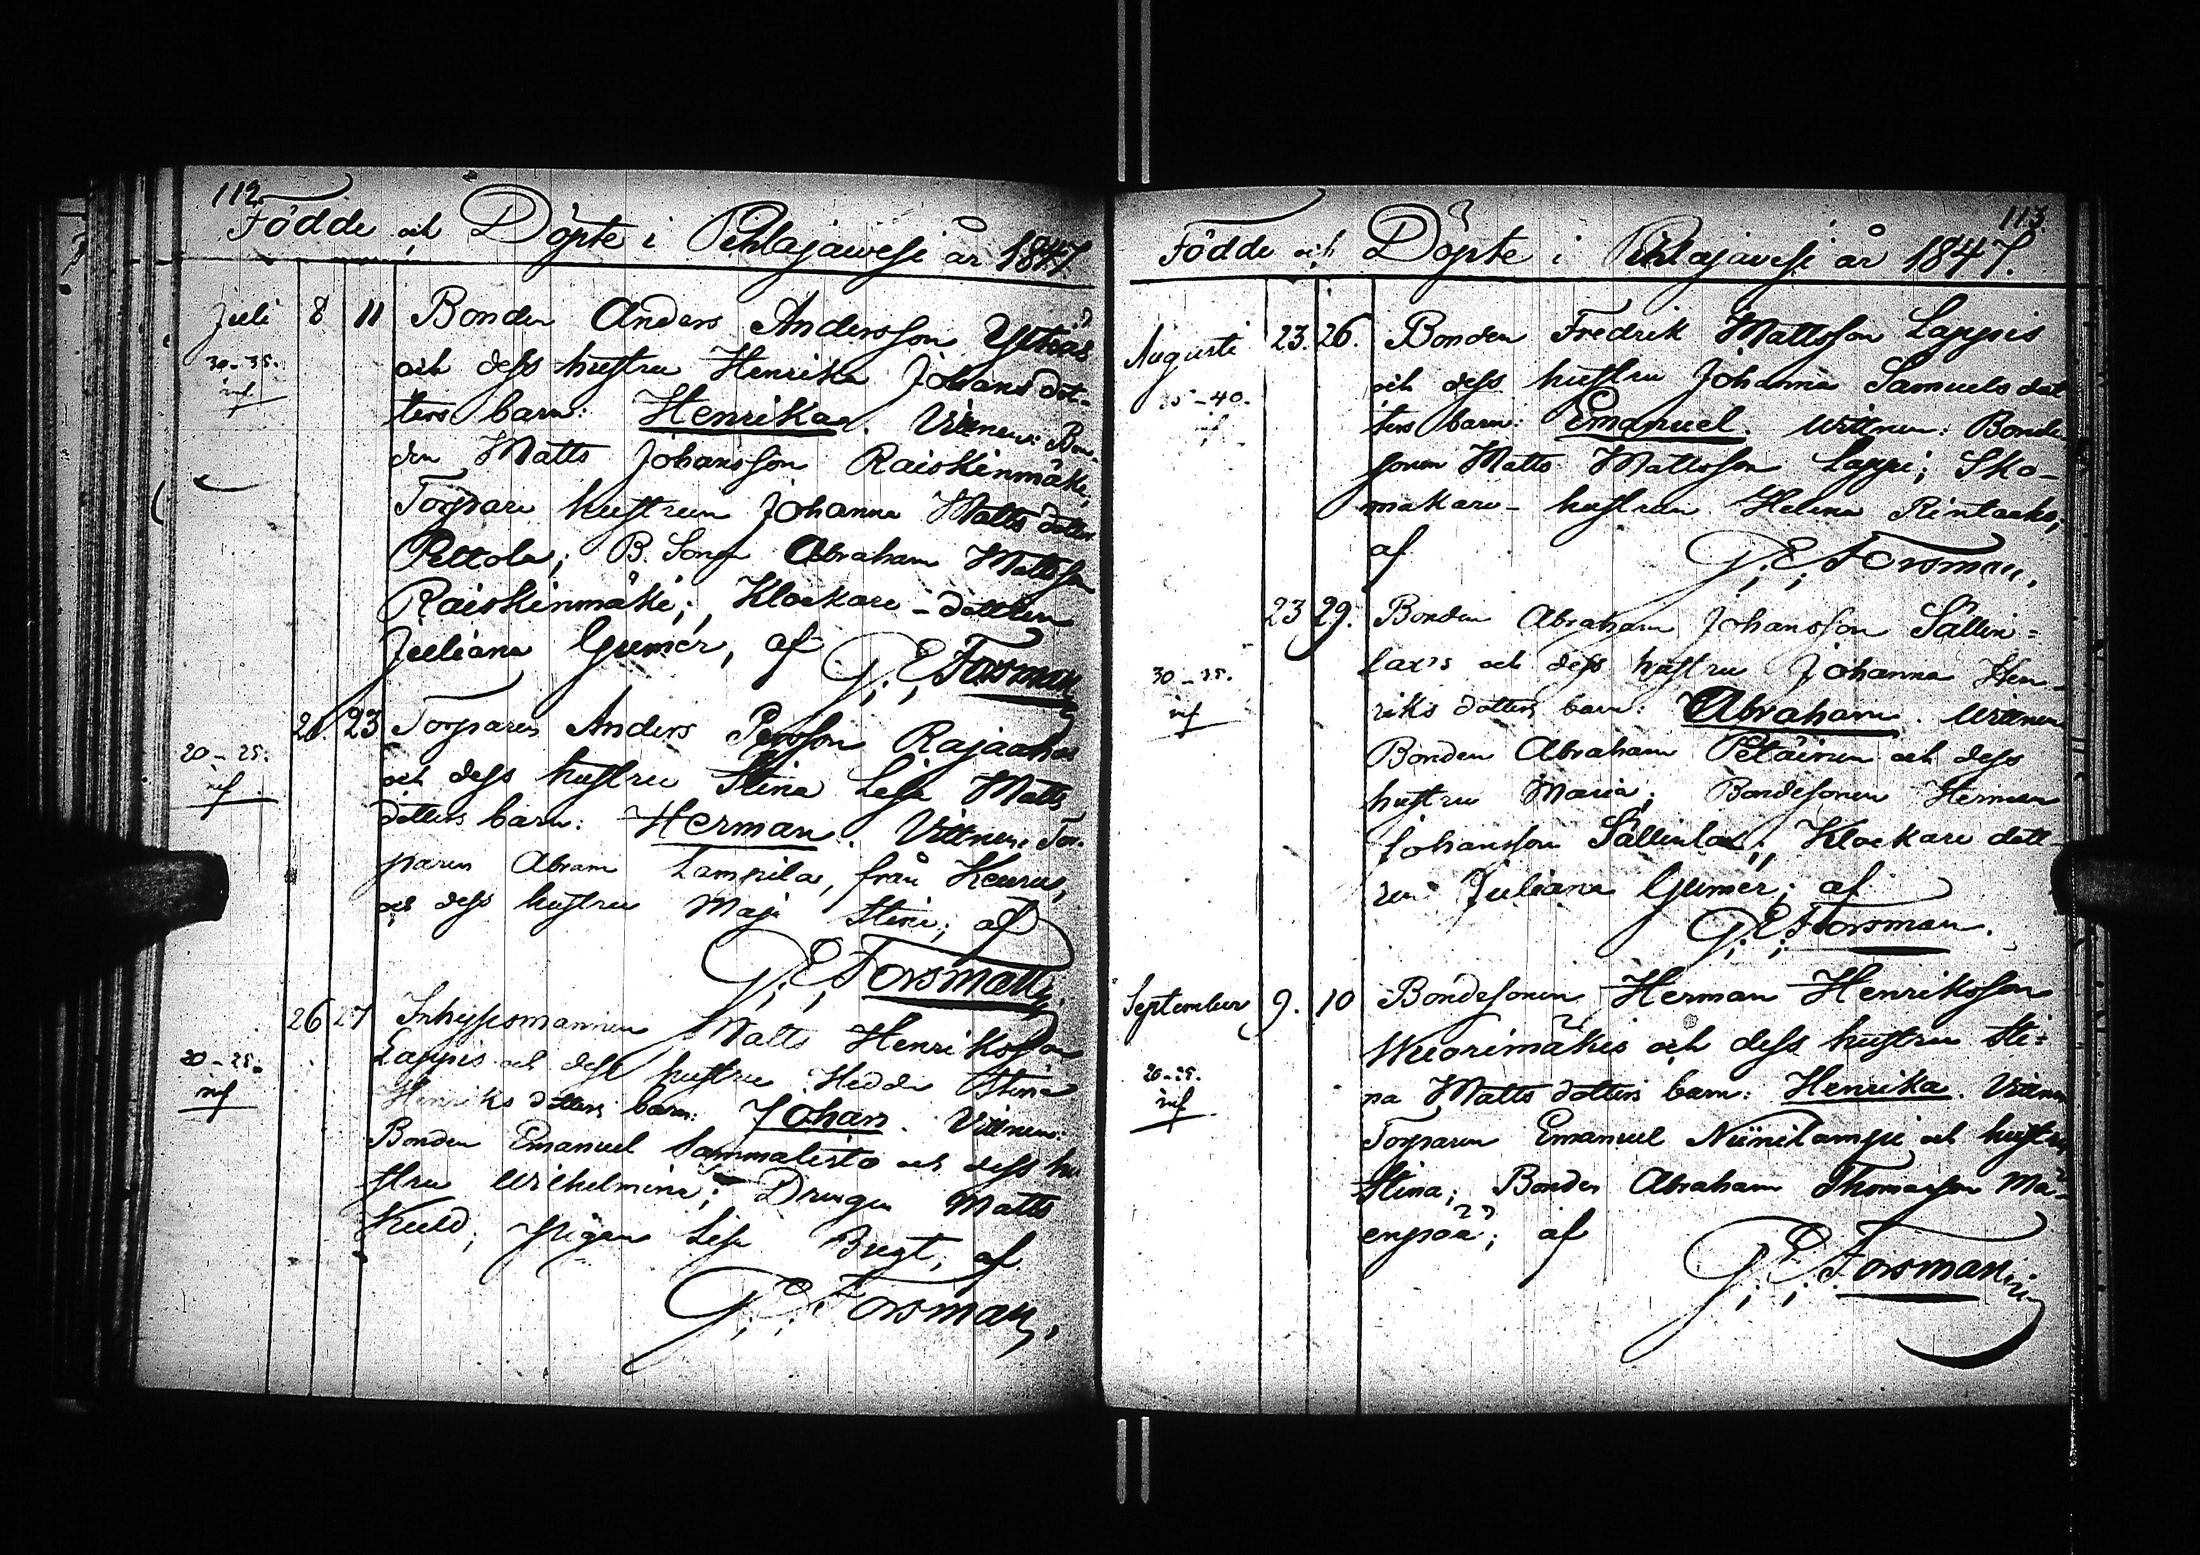 112.
Födde och Döpte i Pihlajawesi år 1847.
Juli 8 11 Bonden Anders Andersson
30-35. och dess hustru Henrika Johans dot-
nif ters barn: Henrika. Vittnen: Bon-
den Matts Johansson Raiskinmäki,
Torpare hustrun Johanna Matts dotter
Pettola; B. Sonen Abraham Mattsson
Raiskinmäki; Klockare-dottren
Juliana Gumér, af
G. E. Forsman
23 Torparen Anders Persson
20-25. och dess hustru Stina Lisa Matts
nif dotters barn: Herman. Vittnen: Tor-
paren Abram Lampila, från Keuru,
och dess hustru Maja Stina; af
G. E. Forsman
26 27 Inhysesmannen Matts Henriksson
20-25. Lappis och dess hustru Hedda Stina
nif Henriks dotters barn: Johan. Vittnen:
Bonden Emanuel Sammalisto och dess hu-
stru Wilhelmina; Drengen Matts
Kuld; pigan Lisa af
G. E. Forsman,
113.
Födde och Döpte i Pihlajavesi år 1847.
Augusti 23. 26. Bonden Fredrik Mattsson Lappis
35-40. och dess hustru Johanna Samuels dot
nif ters barn: Emanuel. Wittnen: Bonde
sonen Matts Mattsson Lappi; Sko-
makare-hustrun Helena Rintaaho;
af G. E. Forsman,
23 29. Bonden Abraham Johansson Sällin=
30-35. lax's och dess hustru Johanna Hen-
nif riks dotters barn: Abraham. Wittnen
Bonden Abraham Petäinen och dess
hustru Maria; Bondesonen Herman
Johansson Sällinlax; Klockare dott-
ren Juliana Gumér; af
G. E. Forsman.
September 9. 10 Bondesonen Herman Henriksson
Wuorimäkis och dess hustru Sti=
20-25. na Matts dotters barn: Henrika. Vittnen
nif Torparen Emanuel Niinilampi och hustru
Stina; Bonden Abraham Thomasson Mä-
enpää; af
G. E. Forsman